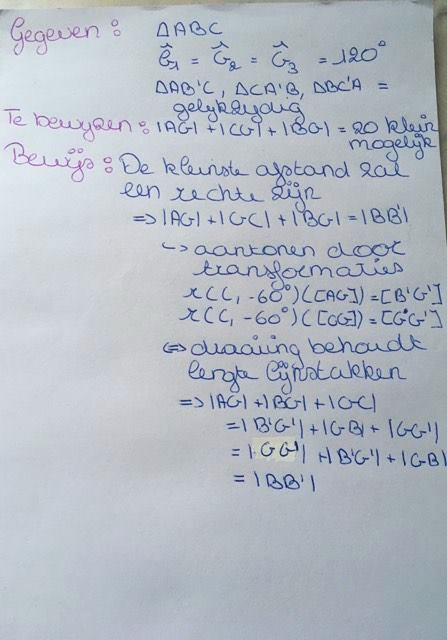 Gegeven : ΔABC
Ĝ₁ = Ĝ₂ = Ĝ₃ = 120°
ΔAB'C, ΔCA'B, ΔBC'A =
gelijkzijdig
Te bewijzen : |AG| + |CG| + |BG| = zo klein
mogelijk
Bewijs : De kleinste afstand zal
een rechte zijn
⇒ |AG| + |GC| + |BG| = |BB'|
↳ aantonen door
transformaties
r(C, -60°)([AG]) = [B'G']
r(C, -60°)([CG]) = [G'G']
⇔ draaiing behoudt
lengte lijnstukken
⇒ |AG| + |BG| + |GC|
= |B'G'| + |GB| + |GG'|
= |GG'| + |B'G'| + |GB|
= |BB'|